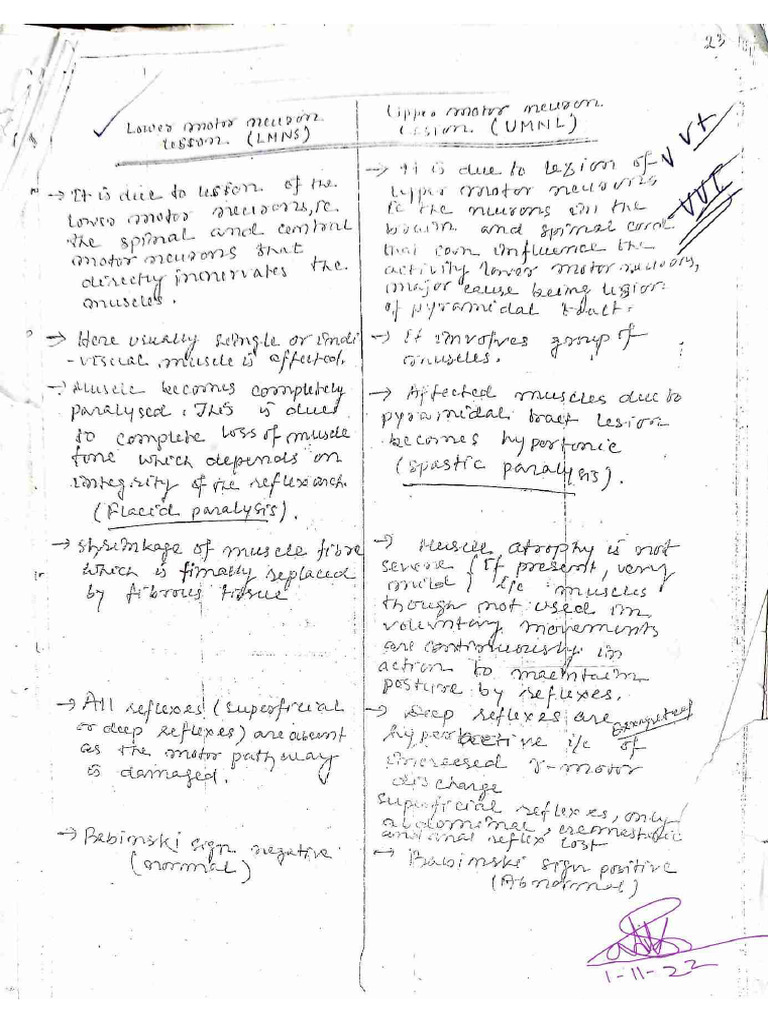 23
Lower motor neuron
lesson (LMNS)
→ It is due to lesion of the
lower motor neurons, ie
the spinal and central
motor neurons that
directly innervates the
muscles.
→ Here usually single or indi
-visual muscle is affected.
→ Muscle becomes completely
paralysed. This is due
to complete loss of muscle
tone which depends on
integrity of the reflex arch.
(Flacid paralysis).
→ Shrinkage of muscle fibre
which is finally replaced
by fibrous tissue
→ All reflexes (superficial
or deep reflexes) are absent
as the motor pathway
is damaged.
→ Babinski sign negative
(normal)
Upper motor neuron
Lesion (UMNL)
V V I
VVI
→ It is due to lesion of
upper motor neurons
ie the neurons in the
brain and spinal cord
that can influence the
activity lower motor neurons,
major cause being lesion
of pyramidal tract.
→ It involves group of
muscles.
→ Affected muscles due to
pyramidal tract lesion
becomes hypertonic
(spastic paralysis).
→ Muscle atrophy is not
severe (If present, very
mild) i/c muscles
though not used in
voluntary movements
are continuously in
action to maintain
posture by reflexes.
→ Deep reflexes are
hyperactive i/c of
increased γ-motor
discharge
superficial reflexes, only
abdominal, cremasteric
and anal reflex lost
→ Babinski sign positive
(Abnormal)
1-11-22